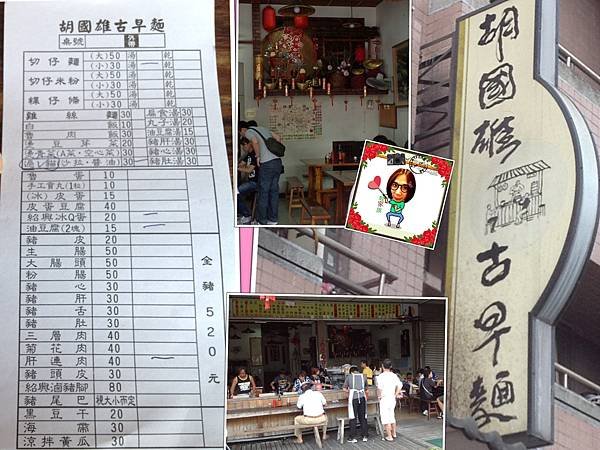 胡國雄古早麵
桌號 外帶
切仔麵 (大)50 湯 乾
(小)30 湯 乾
切仔米粉 (大)50 湯 乾
(小)30 湯 乾
粿仔條 (大)50 湯 乾
(小)30 湯 乾
雞絲麵 30 扁食湯 30
白飯 10 丸子湯 20
魯肉飯 30 油豆腐湯 15
燙豆芽菜 20 豬肝湯 30
燙青菜(A菜·空心菜) 30 豬心湯 30
(沙拉·醬油) 30 豬肚湯 30
魯蛋 10
手工貢丸(1粒) 10
(冰)皮蛋 15
皮蛋豆腐 40
紹興冰Q蛋 20
油豆腐(2塊) 15
豬皮 20
生腸 50
大腸頭 50
粉腸 50
豬心 30
豬肝 30
豬舌 30
豬肚 30
三層肉 40
菊花肉 40
肝連肉 40
豬頭皮 30
紹興滷豬腳 80
豬尾巴 視大小市定
黑豆干 20
海帶 30
涼拌黃瓜 30
全豬520元
胡國雄古早麵